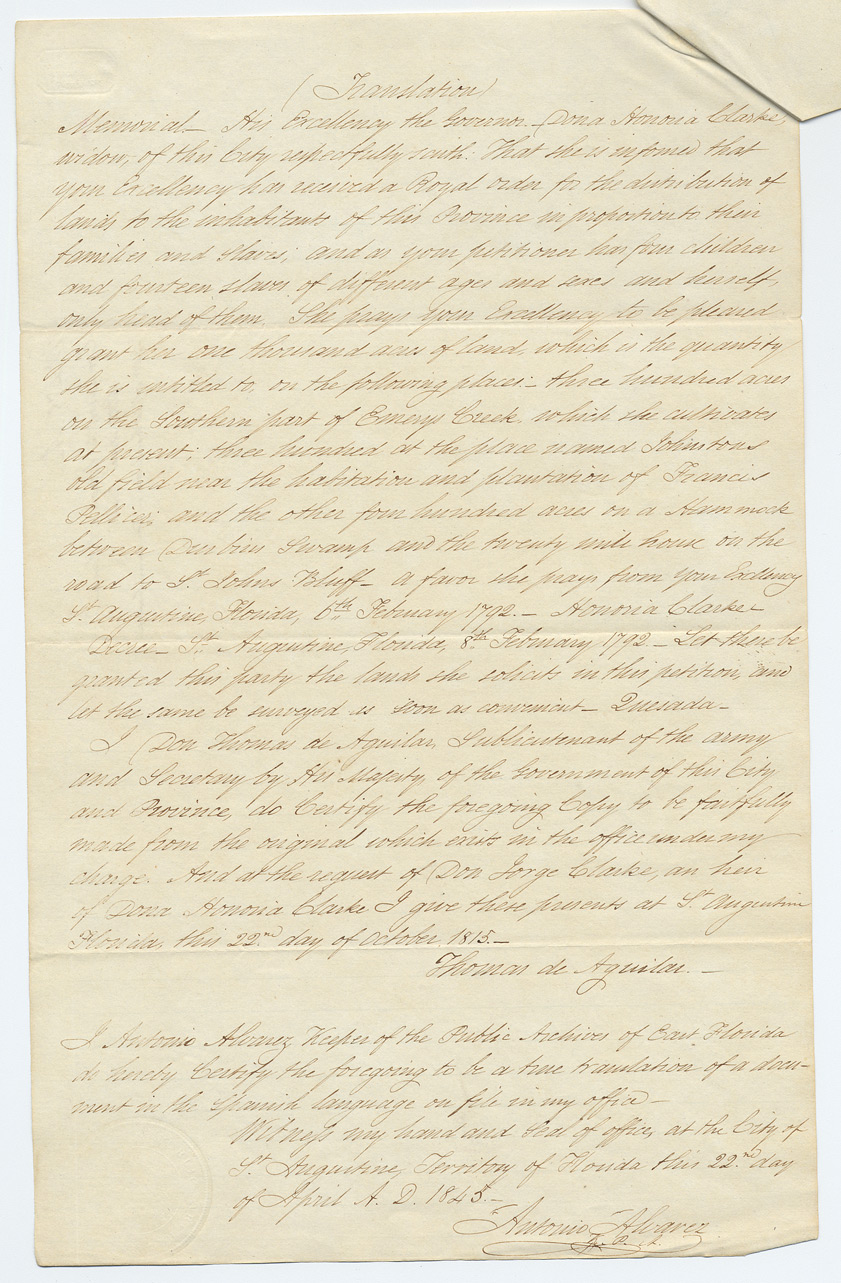 (Translation)
Memorial_ His Excellency the Governor._ Dona Honoria Clarke,
widow, of this City respectfully seuth: That she is infomed that
your Excellency has received a Royal order for the distribution of
lands to the inhabitants of this Province in proportion to their
families and slaves; and as your petitioner has four children
and fourteen slaves of different ages and sexes and herself
only head of them. She prays your Excellency to be pleased
grant her one thousand acres of land, which is the quantity
she is intitled to, on the following places:_ three hundred acres
on the Southern part of Emerys Creek, which she cultivates
at present; three hundred at the place named Johnstons
old field near the habitation and plantation of Francis
Pellicer; and the other four hundred acres on a Hammock
between Durbins Swamp and the twenty mile house on the
road to St. Johns Bluff_ a favor she prays from your Excellency
St. Augustine, Florida, 6th February 1792._ Honoria Clarke_
Decree_ St. Augustine, Florida, 8th February 1792_ Let there be
granted this party the lands she solicits in this petition, and
let the same be surveyed as soon as convenient_ Quesada_
I Don Thomas de Aguilar, Sublieutenant of the army
and Secretary by His Majesty, of the Government of this City
and Province, do Certify the foregoing Copy to be faithfully
made from the original which exists in the office under my
charge. And at the request of Don Jorge Clarke, an heir
of Dona Honoria Clarke I give these presents at St. Augustine
Florida, this 22nd day of October, 1815._
Thomas de Aguilar._
I Antonio Alvarez Keeper of the Public Archives of East Florida
do hereby Certify the foregoing to be a true translation of a docu-
ment in the Spanish language on file in my office_
Witness my hand and seal of office, at the City of
St. Augustine, Territory of Florida this 22nd day
of April A. D. 1845._
Antonio Alvarez
K. P. A.